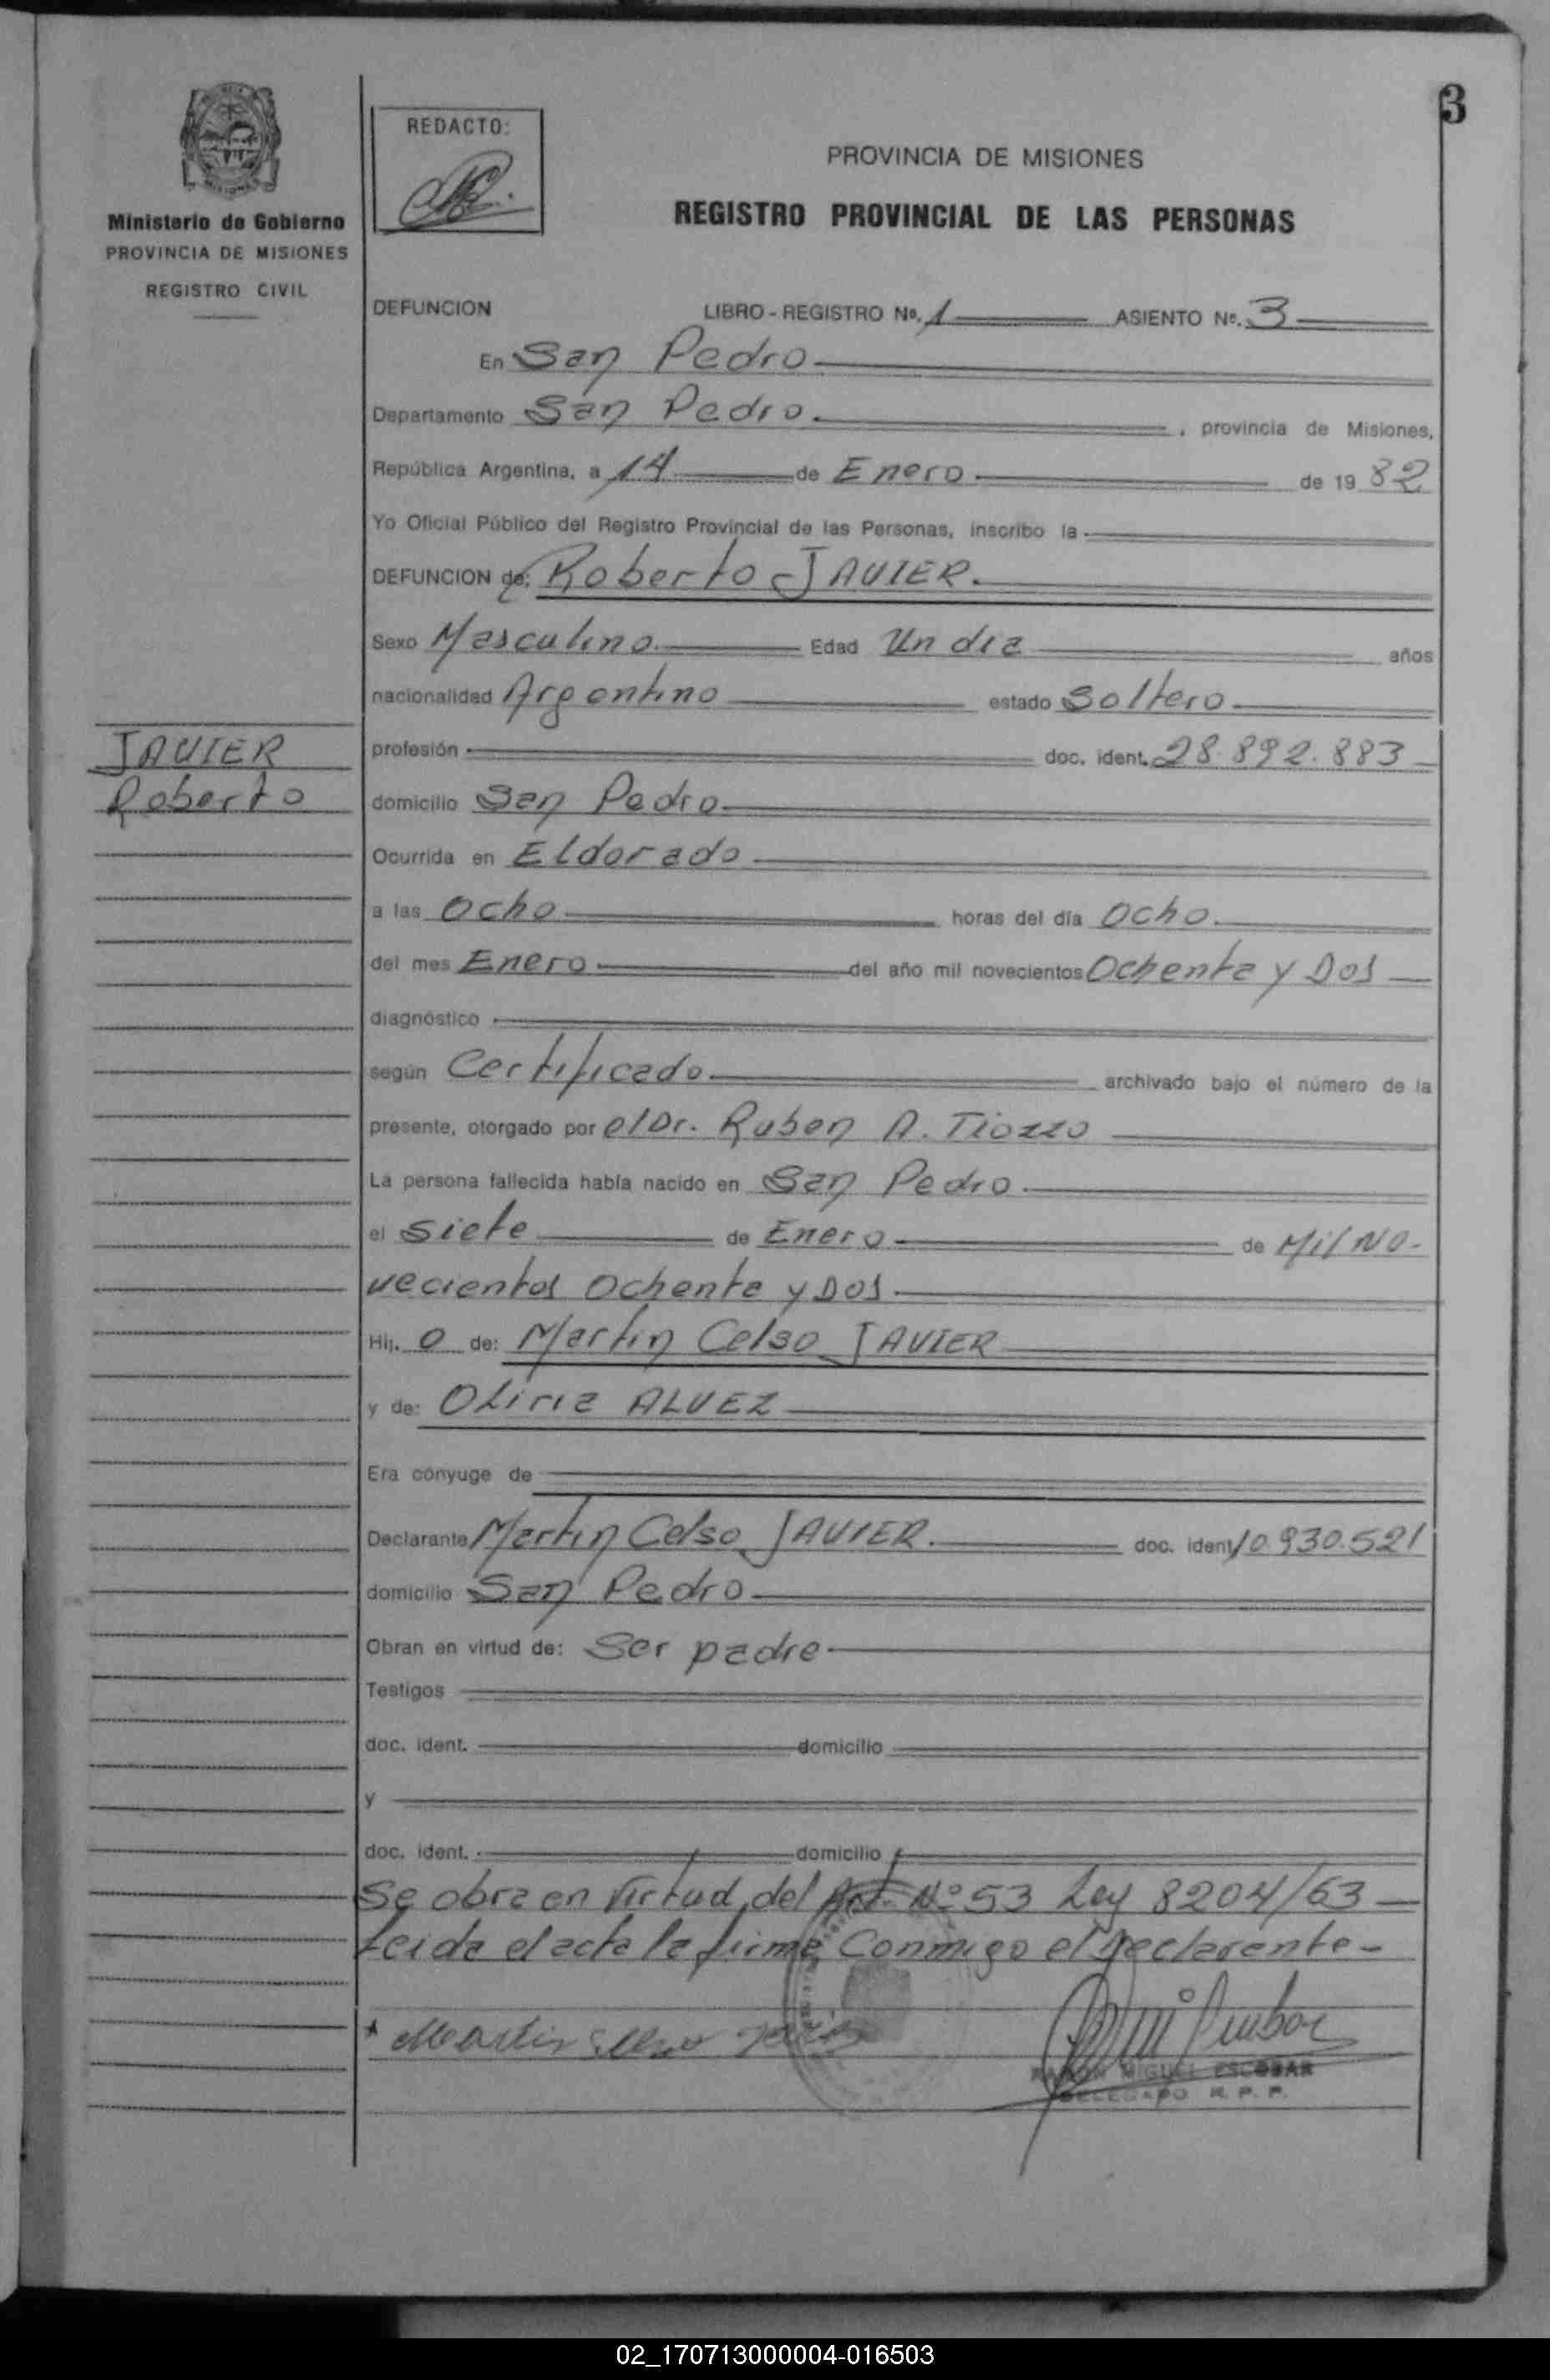 3
REDACTO:
PROVINCIA DE MISIONES
REGISTRO PROVINCIAL DE LAS PERSONAS
Ministerio de Gobierno
PROVINCIA DE MISIONES
REGISTRO CIVIL
DEFUNCION LIBRO - REGISTRO Nº. 1 ASIENTO Nº. 3
En San Pedro
Departamento San Pedro. , provincia de Misiones,
República Argentina, a 14 de Enero de 19 82
Yo Oficial Público del Registro Provincial de las Personas, inscribo la
DEFUNCION de: Roberto JAVIER.
Sexo Masculino. Edad Un dia años
nacionalidad Argentino estado Soltero
JAVIER
Roberto
profesión doc. ident. 28.892.883
domicilio San Pedro
Ocurrida en Eldorado
a las Ocho horas del día Ocho.
del mes Enero del año mil novecientos Ochenta y Dos
diagnóstico
según Certificado archivado bajo el número de la
presente, otorgado por el Dr. Ruben A. Tiozzo
La persona fallecida había nacido en San Pedro
el Siete de Enero de Mil No-
vecientos Ochenta y Dos
Hij. o de: Martin Celso JAVIER
y de: Oliria ALVEZ
Era cónyuge de
Declarante Martin Celso JAVIER. doc. ident 10.930.521
domicilio San Pedro
Obran en virtud de: Ser padre
Testigos
doc. ident. domicilio
y
doc. ident. domicilio
Se obra en Virtud del Art. Nº 53 Ley 8204/63
Leida el acta la firma Conmigo el declarante-
Martin Celso
RAMON MIGUEL ESCOBAR
DELEGADO R. P. P.
02_170713000004-016503